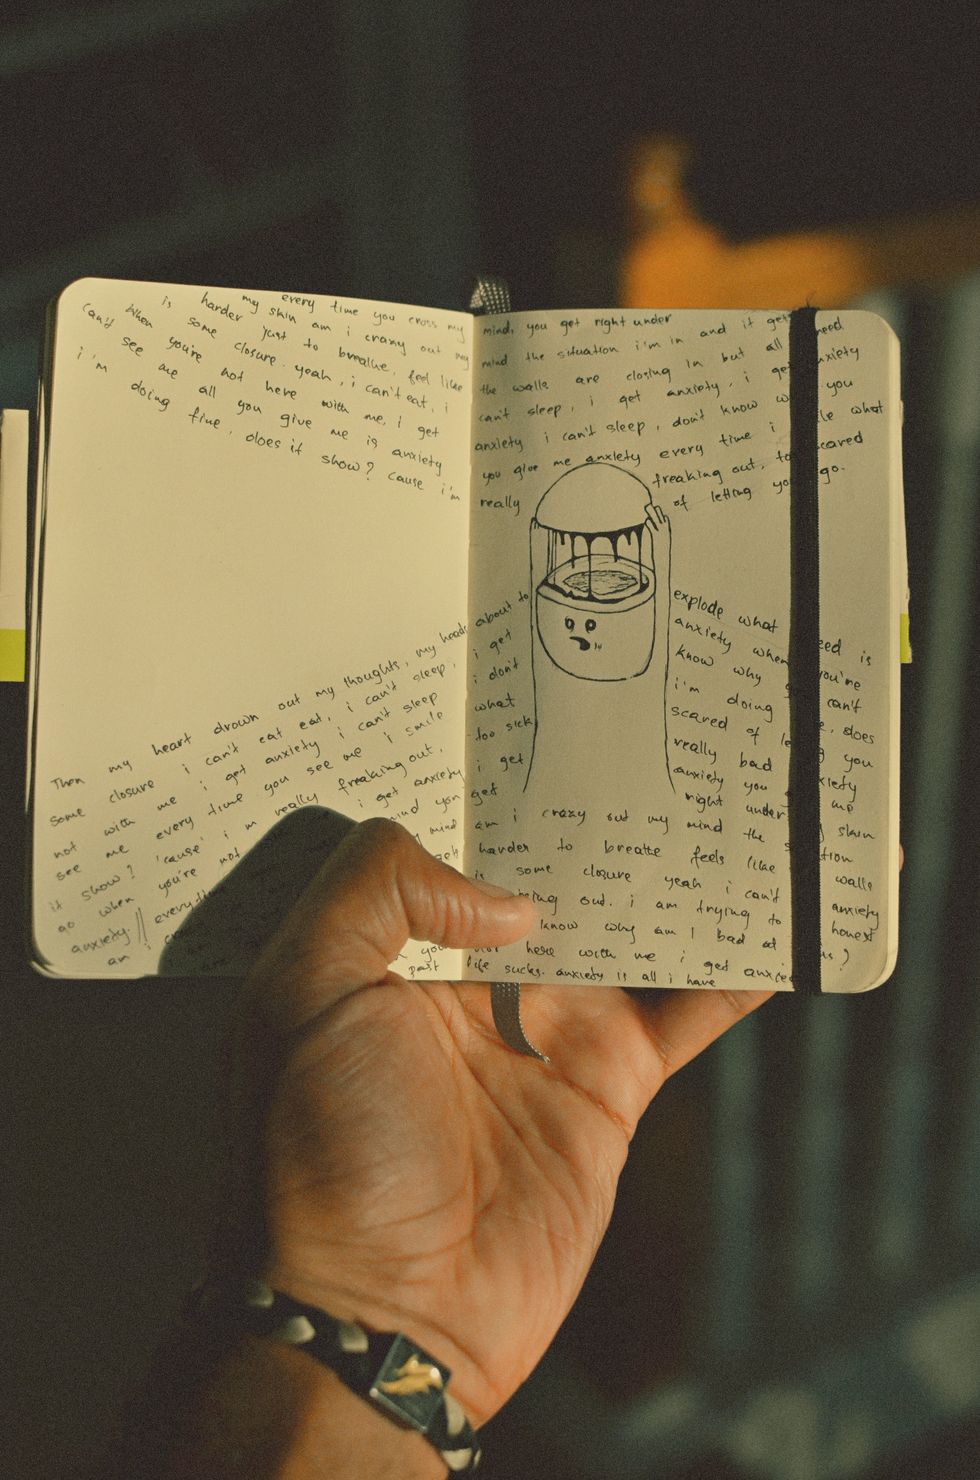 my every time you cross my
is harder my skin am i crazy out my
can't when some just to breathe, feel like
see you're closure. yeah, i can't eat, i
i'm me not here with me, i get
doing all you give me is anxiety
fine, does it show? cause i'm
Then my heart drown out my thoughts, my heads
some closure i can't eat eat, i can't sleep,
not with me i get anxiety i can't sleep
see me every time you see me i smile
it show? 'cause' i'm really freaking out,
go when you're not i get anxiety
anxiety. // mind you
am i my mind
you
past
mind, you get right under
mind the situation i'm in and it gets need
the walls are closing in but all anxiety
can't sleep, i get anxiety, i get you
anxiety i can't sleep, don't know what
you give me anxiety every time i scared
really freaking out, go.
of letting
about to explode what
i get anxiety when need is
i don't know why you're
what i'm doing can't
too sick scared of does
i get really bad you
get anxiety you
right under me
am i crazy out my mind the skin
harder to breathe feels like
is some closure yeah i can't walls
out. i am trying to anxiety
know why am I bad at honest
here with me i get
life sucks. anxiety is all i have